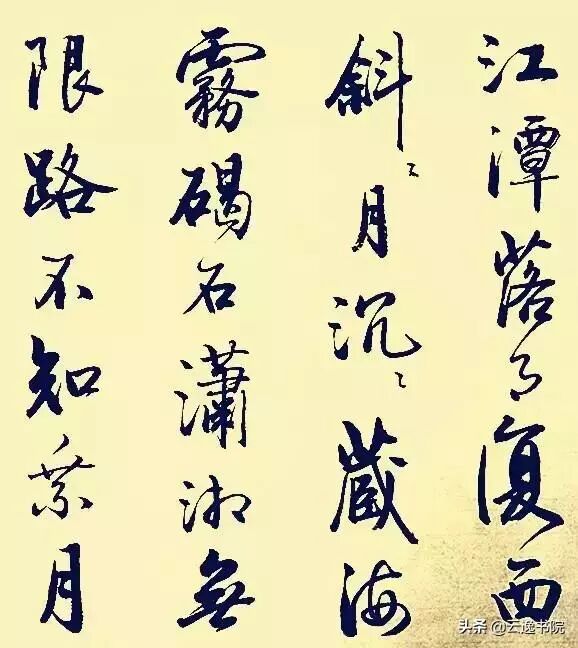 江潭落月復西
斜〻月沉〻藏海
霧碣石瀟湘無
限路不知乘月
头条 @云逸书院